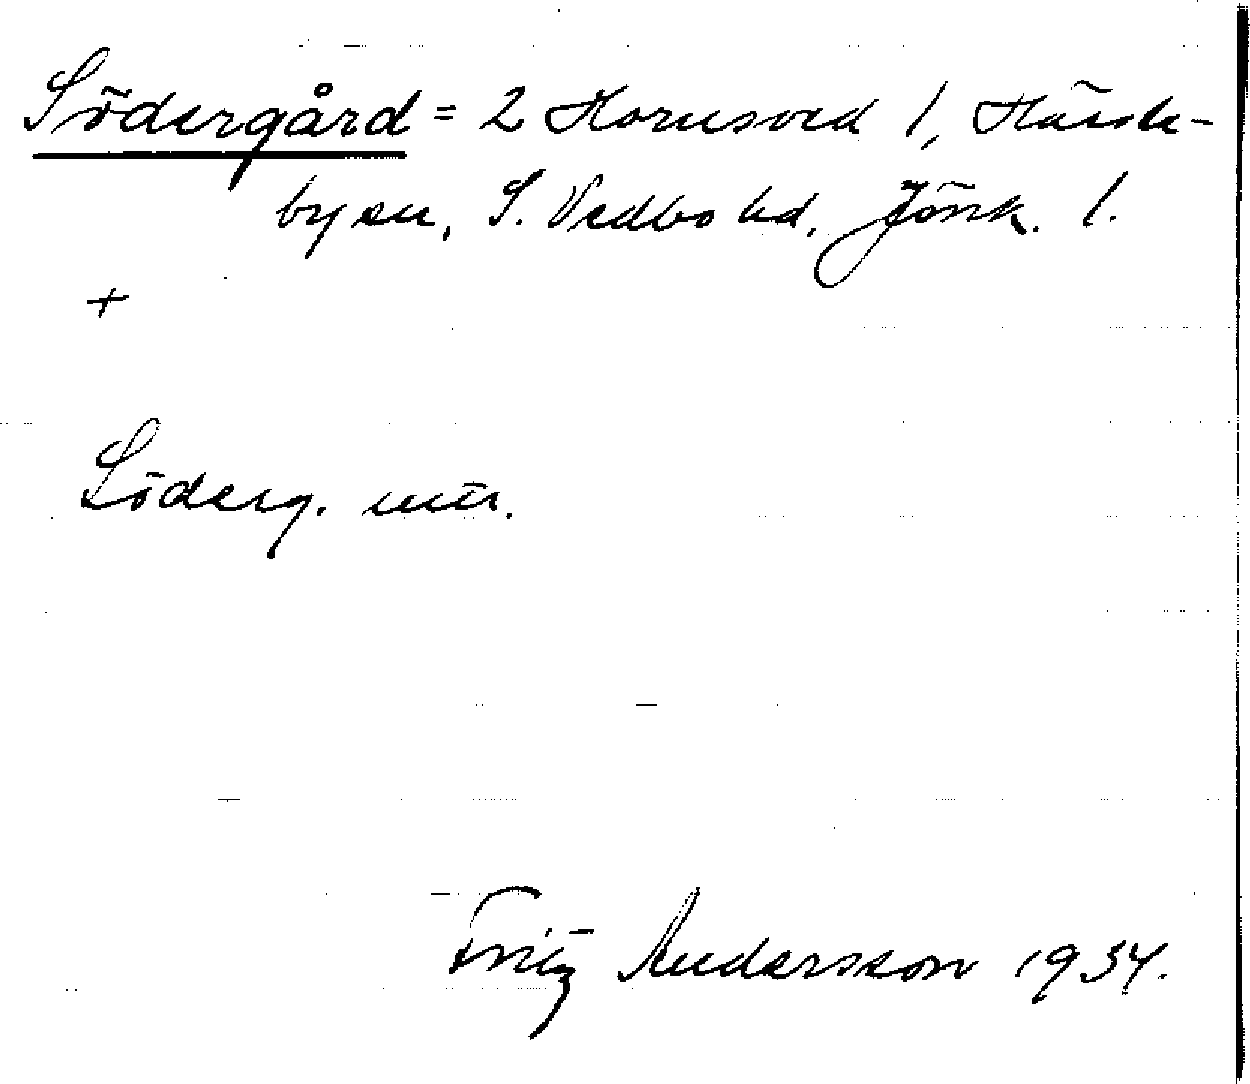 Södergård = 2 Hornsved 1, Hässle-
by sn, S. Vedbo hd, Jönk. l.
+
Söderg. mtr.
Fritz Andersson 1934.